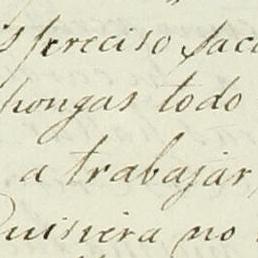 s preciso sac
pongas todo
a trabajar,
Quisiera no